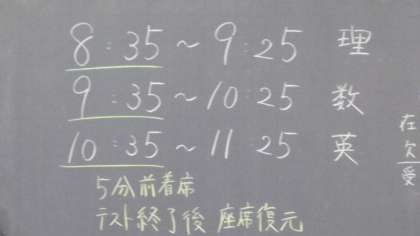 8:35～9:25 理
9:35～10:25 数
10:35～11:25 英
5分前着席
テスト終了後 座席復元
在
欠
受